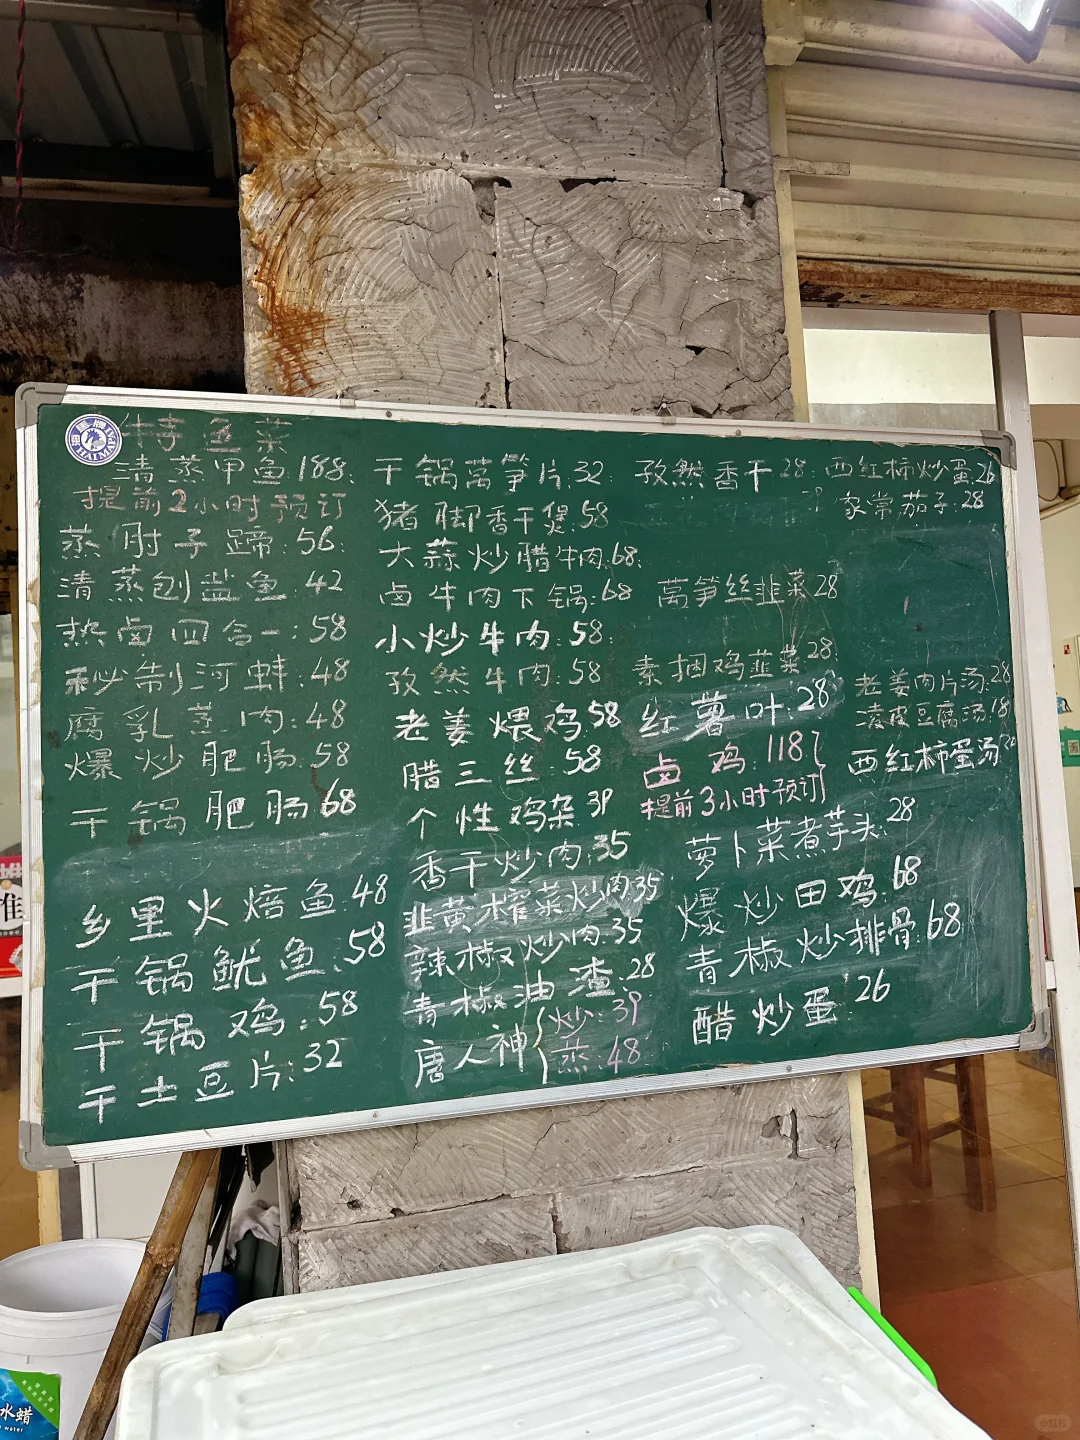 特色菜
清蒸甲鱼188:
提前2小时预订
蒸肘子蹄:56:
清蒸刨盐鱼:42
热卤四合一:58
秘制河蚌:48
腐乳蒸肉:48
爆炒肥肠:58
干锅肥肠68
乡里火焙鱼:48
干锅鱿鱼:58
干锅鸡:58
干土豆片:32
干锅莴笋片:32
猪脚香干煲:58
大蒜炒腊牛肉:68:
卤牛肉下锅:68
小炒牛肉:58
孜然牛肉:58
老姜煨鸡58
腊三丝:58
个性鸡杂39
香干炒肉:35
韭黄榨菜炒肉35
辣椒炒肉:35
青椒油渣:28
唐人神{炒:39
蒸:48
孜然香干28:
莴笋丝韭菜28
素捆鸡韭菜:28
红薯叶:28
卤鸡:118
提前3小时预订
萝卜菜煮芋头:28
爆炒田鸡:68
青椒炒排骨:68
醋炒蛋:26
西红柿炒蛋:26
家常茄子:28
老姜肉片汤:28
凌皮豆腐汤:18
西红柿蛋汤